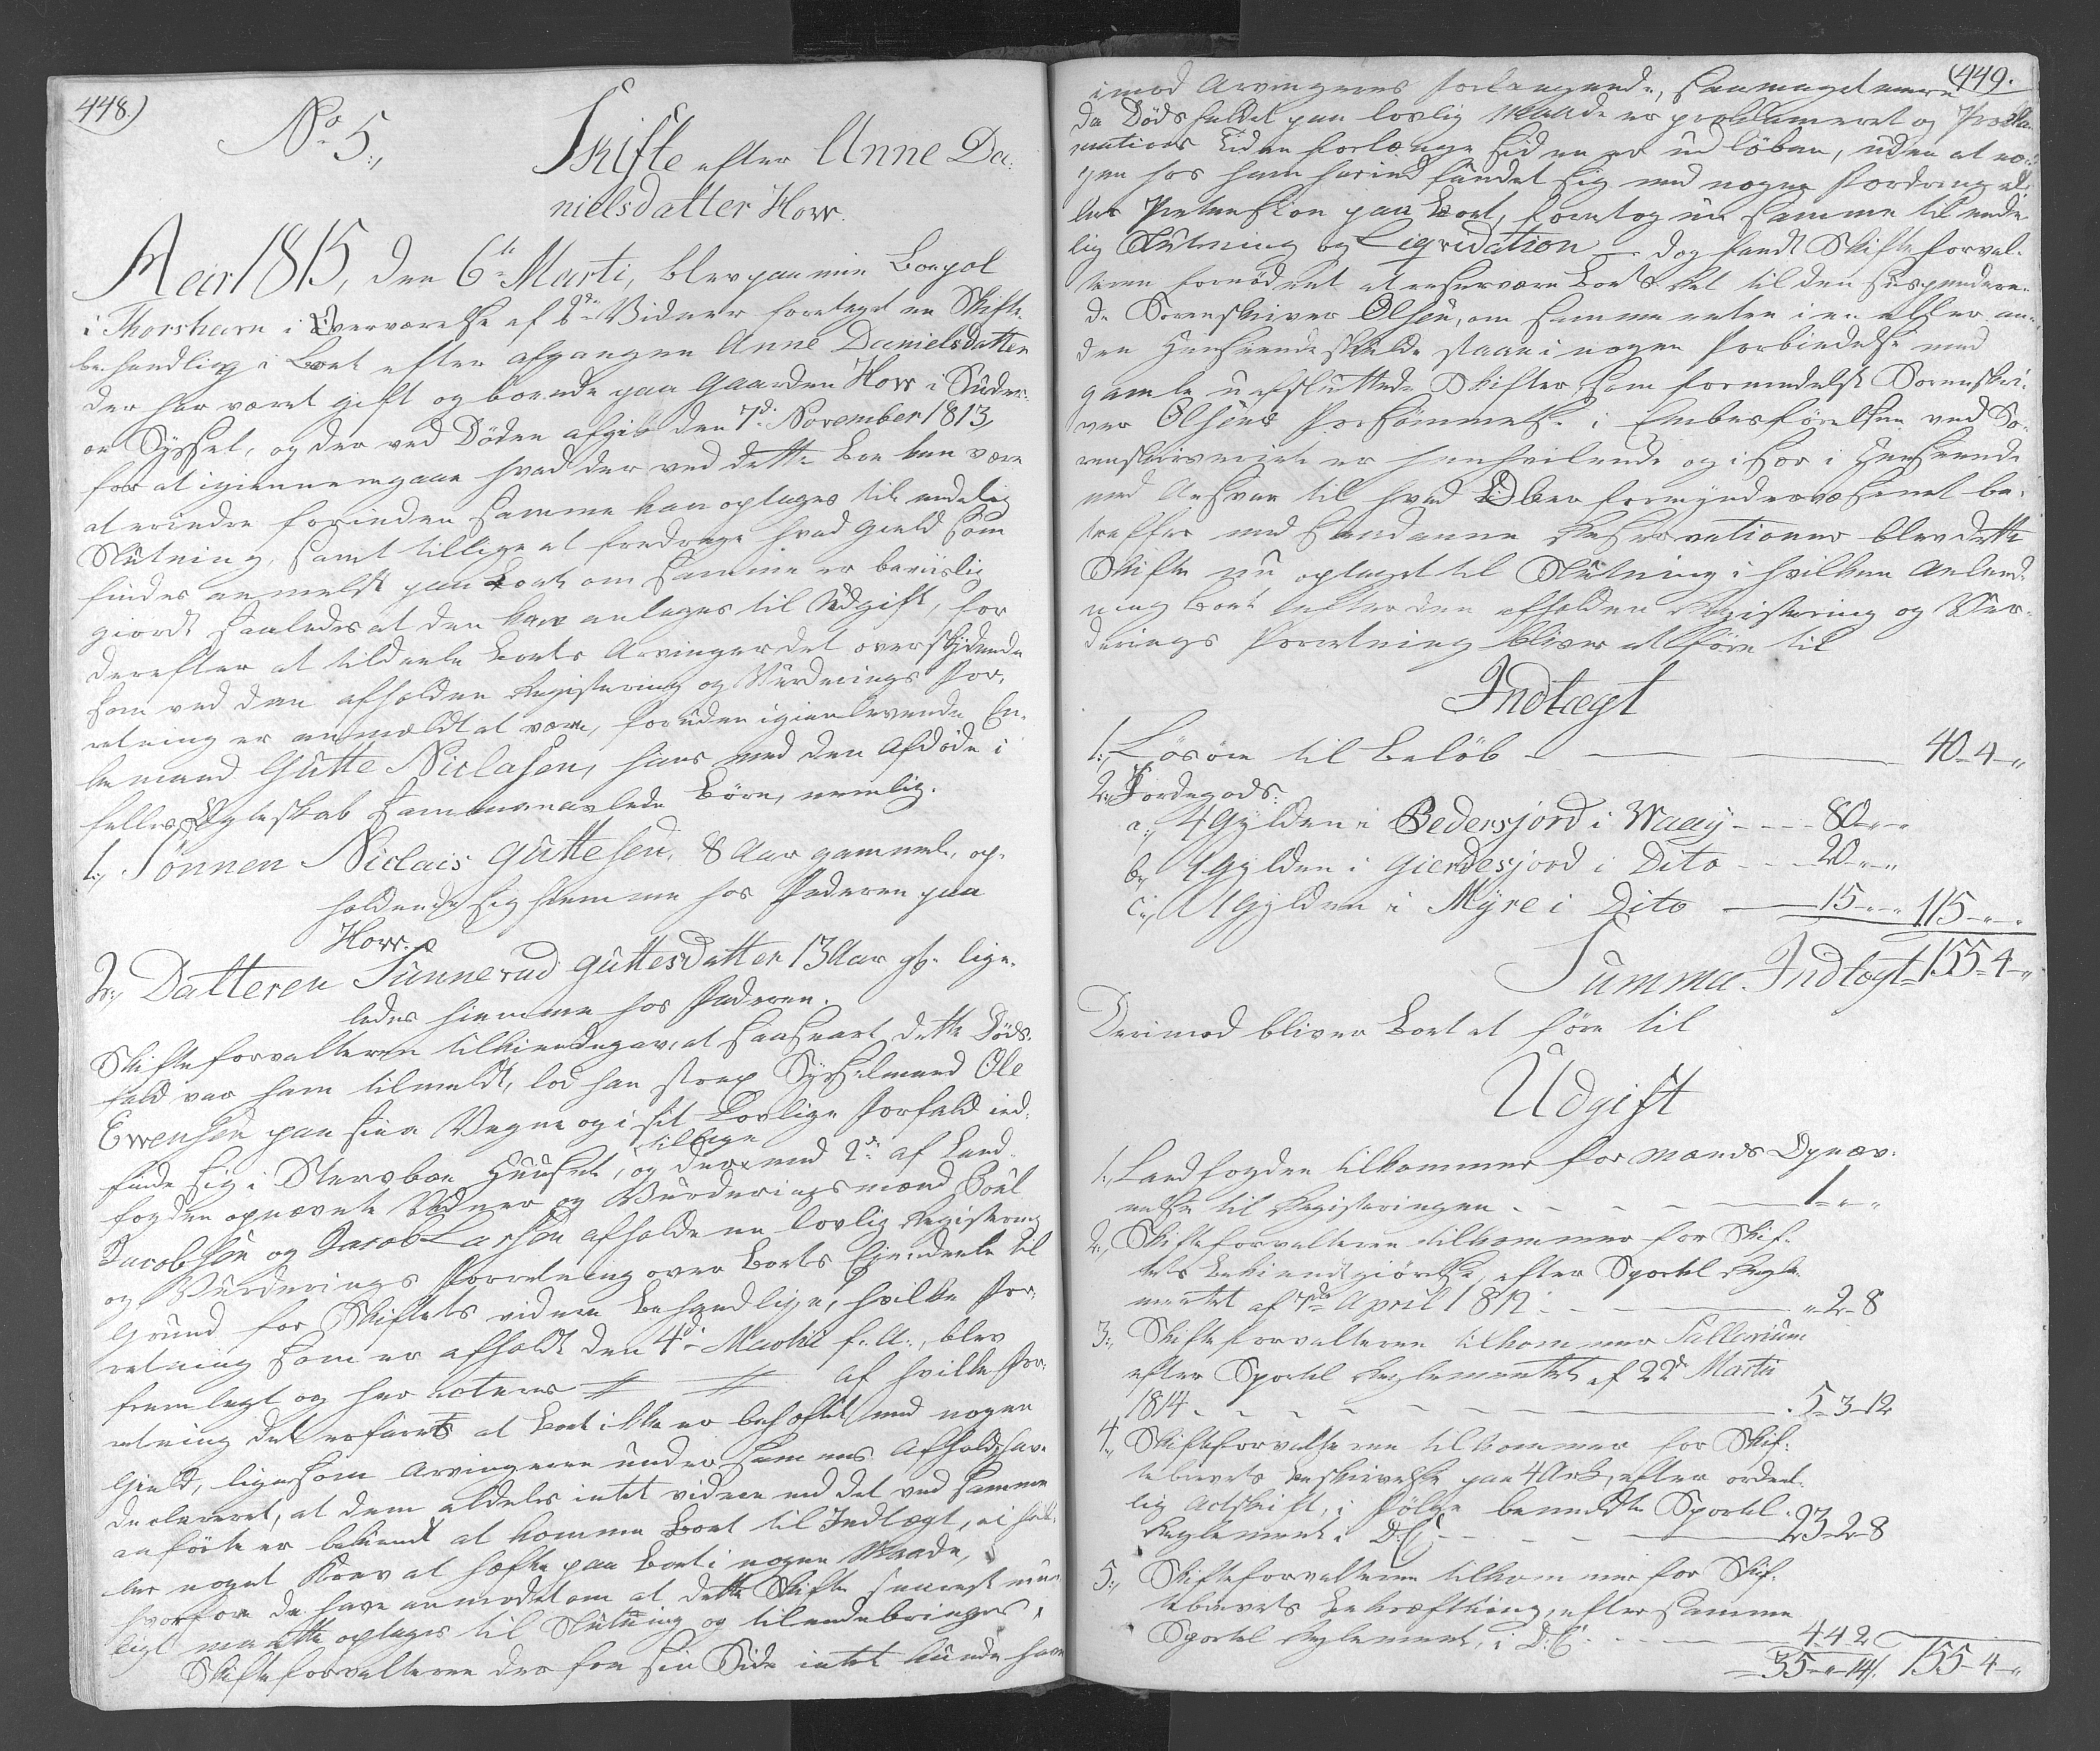 448.)
No 5.,
Skifte efter Anne Da-
nielsdatter Horv.
Aar 1815, den 6te Marti, blev paa min Boepæl
i Thorshavn i Overværelse af 2de Vidner foretaget en Skifte
behandling i Boet efter afgangne Anne Danielsdatter
der har været gift og boende paa Gaarden Horv i Suder-
øe Syssel, og der ved Døden afgik den 7de November 1813,
for at igiennemgaae hvad der ved dette Boe kan være
at erindre forinden samme kan optages til endelig
Slutning, samt tillige at fradrage hvad Gield som
findes anmeldt paa Boet om samme er beviislig
giordt saaledes at den kan antages til Udgift, for
derefter at tildeele Boets Arvinger det overskydende
som ved den afholdne Registering og Vurderings For-
retning er anmældt at være, foruden igienlevende En-
kemand Gutte Niclasen, hans med den Afdøde i
fælles Ægteskab sammenavlede Børn, nemlig.
1., Sønnen Niclais Guttesen, 8 Aar gammel, op-
holdende sig hiemme hos Faderen paa
Horv.
2., Datteren Sunnevud Guttesdatter 13 Aar gl. lige-
ledes hiemme hos Faderen.
Skifteforvalteren tilkiendegav, at saasnart dette Døds-
fald var ham tilmeldt, lod han strax Sysselmand Ole
Ewensen paa sine Vegne og i sit Lovlige Forfald ind-
finde sig i Stervboe Huuset, og der med 2de af Land-
tillige
fogden opnævnte Vidner og Vurderingsmænd Poul
Jacobsen og Jacob Larsen afholde en lovlig Registering
og Vurderings Forretning over Boets Eiendeele til
Grund for Skiftets videre Behandling, hvilke For-
retning som er afholdt den 4de Martii f. A., blev
fremlagt og her noteres # # af hvilke For-
retning det erfares at Boet ikke er behæftet med nogen
Gield, ligesom Arvingerne under sammes Afhold have
declareret, at dem aldeles intet videre end det ved samme
anførte er bekiendt at komme Boet til Indtægt, ei hel-
ler noget Krav at hæfte paa Boet i nogen Maade,
hvorfore de have anmodet om at dette Skifte snarest mue-
ligt maatte optages til Slutning og tilendebringes,
Skifteforvalteren der fra sin Side intet kunde have
449.
imod Arvingernes forlangende, saameget mere
da Dødsfaldet paa lovlig Maade er proclameret og Procla-
mations Tiden forlængst siden er udløben, uden at no-
gen hos ham har indfundet sig med nogen Fordring el-
ler Prætension paa Boet, foretog nu samme til ende-
lig Slutning og Liqvidation — dog fandt Skifteforval-
teren fornødent at reservere Boets Ret til den suspendere-
de Sorenskriver Olsen, om samme enten i en eller an-
den Henseende skulde staae i nogen Forbindelse med
gamle uafsluttede Skifter som formedelst Sorenskri-
ver Olsens Forsømmelse i Embedsførelsen ved So-
renskriveriet er henhvilende og især i Henseende
med Ansvar til hvad Over formynderværsenet be-
træffer med saadanne Reservationer blev dette
Skifte nu optaget til Slutning i hvilken Anled-
ning Boet efter den afholdne Registering og Vur-
derings Forretning bliver at føre til
Indtægt
1., Løsøre til Beløb — 40-4-„
2., Jordegods:
a., 4 Gylden i Pedersjord i Waay - - - 80-„-„
b., 1 Gylden i Gierdesjord i Dito - - - 20-„-„
c., 1 Gylden i Myre i Dito — 15-„-„ 115-„-„
Summa Indtægt 155-4-„
Derimod bliver Boet at føre til
Udgift
1., Landfogden tilkommer for Mænds Opnæv-
nelse til Registeringen - - - 1-„-„
2., Skifteforvalteren tilkommer for Skif-
tets Bekiendtgiørelse, efter Sportel Regle-
mentet af 7de April 1812 - - - „-2-8
3., Skifteforvalteren tilkommer Sallarium
efter Sportel Reglementet af 22de Martii
1814 - - - 5-3-12
4., Skifteforvalteren tilkommer for Skif-
tebrevets Beskrivelse paa 4 Ark, efter ordent-
lig Actskrift, i Følge bemeldte Sportel-
Reglement i D: C. - - - 23-2-8
5., Skifteforvalteren tilkommer for Skif-
tebrevets Bekræftning, efter samme
Sportel Reglement, i D: C. - - - 4 4 2
35-„-14 155-4-„